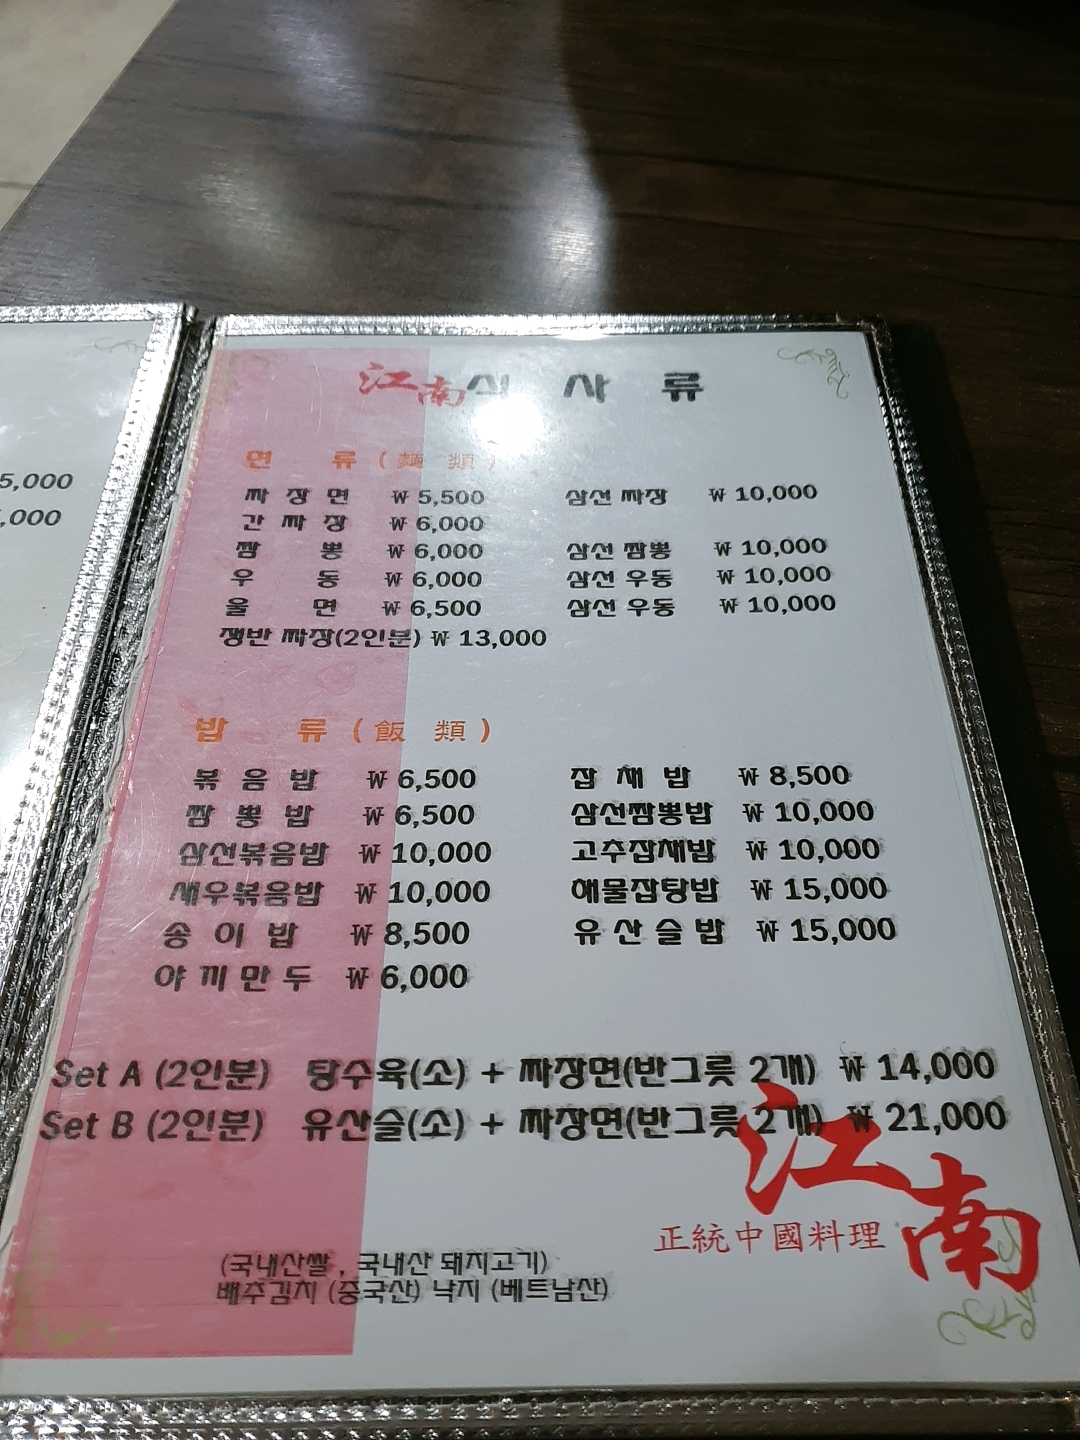 5,000
,000
江南 식 사 류
면 류 ( 麵 類 )
짜 장 면 ₩ 5,500 삼선 짜장 ₩ 10,000
간 짜 장 ₩ 6,000
짬 뽕 ₩ 6,000 삼선 짬뽕 ₩ 10,000
우 동 ₩ 6,000 삼선 우동 ₩ 10,000
울 면 ₩ 6,500 삼선 우동 ₩ 10,000
쟁반 짜장(2인분) ₩ 13,000
밥 류 ( 飯 類 )
볶 음 밥 ₩ 6,500 잡 채 밥 ₩ 8,500
짬 뽕 밥 ₩ 6,500 삼선짬뽕밥 ₩ 10,000
삼선볶음밥 ₩ 10,000 고추잡채밥 ₩ 10,000
새우볶음밥 ₩ 10,000 해물잡탕밥 ₩ 15,000
송 이 밥 ₩ 8,500 유 산 슬 밥 ₩ 15,000
야 끼 만 두 ₩ 6,000
Set A (2인분) 탕수육(소) + 짜장면(반그릇 2개) ₩ 14,000
Set B (2인분) 유산슬(소) + 짜장면(반그릇 2개) ₩ 21,000
江南
正統中國料理
(국내산쌀 , 국내산 돼지고기)
배추김치 (중국산) 낙지 (베트남산)